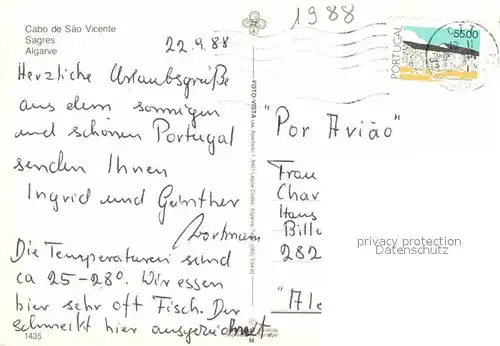 Cabo de São Vicente
Sagres
Algarve
1988
22.9.88
55.00
PORTUGAL
Herzliche Urlaubsgrüße
aus dem sonnigen
und schönen Portugal
senden Ihnen
Ingrid und Günther
Die Temperaturen sind
ca 25-28°. Wir essen
hier sehr oft Fisch. Der
schmeckt hier ausgezeichnet.
1435
FOTO-VISTA
"Por Avião"
Frau
Char
Hans
Bille
282
"Ale
privacy protection
Datenschutz